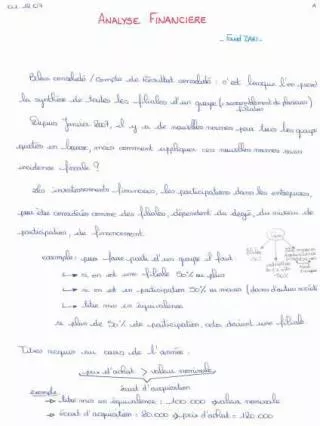 ANALYSE FINANCIERE
Bilan consolidé / Compte de Résultat consolidé : c'est lorsque l'on prend
la synthèse de toutes les filiales d'un groupe
filiales
Depuis Janvier 2007, il y a de nouvelles normes pour tous les groupes
en bourse, mais comment appliquer ces nouvelles normes sans
incidence fiscale ?
Les investissements financiers, les participations dans les entreprises,
considérés comme des filiales, dépendent du degré, du niveau de
participation, de financement.
exemple : pour faire partie d'un groupe il faut :
↳ si on est une filiale 50% ou plus
↳ si on est en participation 50% ou moins (dans d'autres
↳ titre mis en équivalence
si plus de 50% de participation, cela devient une filiale.
Titres acquis au cours de l'année :
prix d'achat > valeur nominale
écart d'acquisition
exemple
→ titre mis en équivalence : 100 000 valeur nominale
→ écart d'acquisition : 20 000 prix d'achat = 120 000